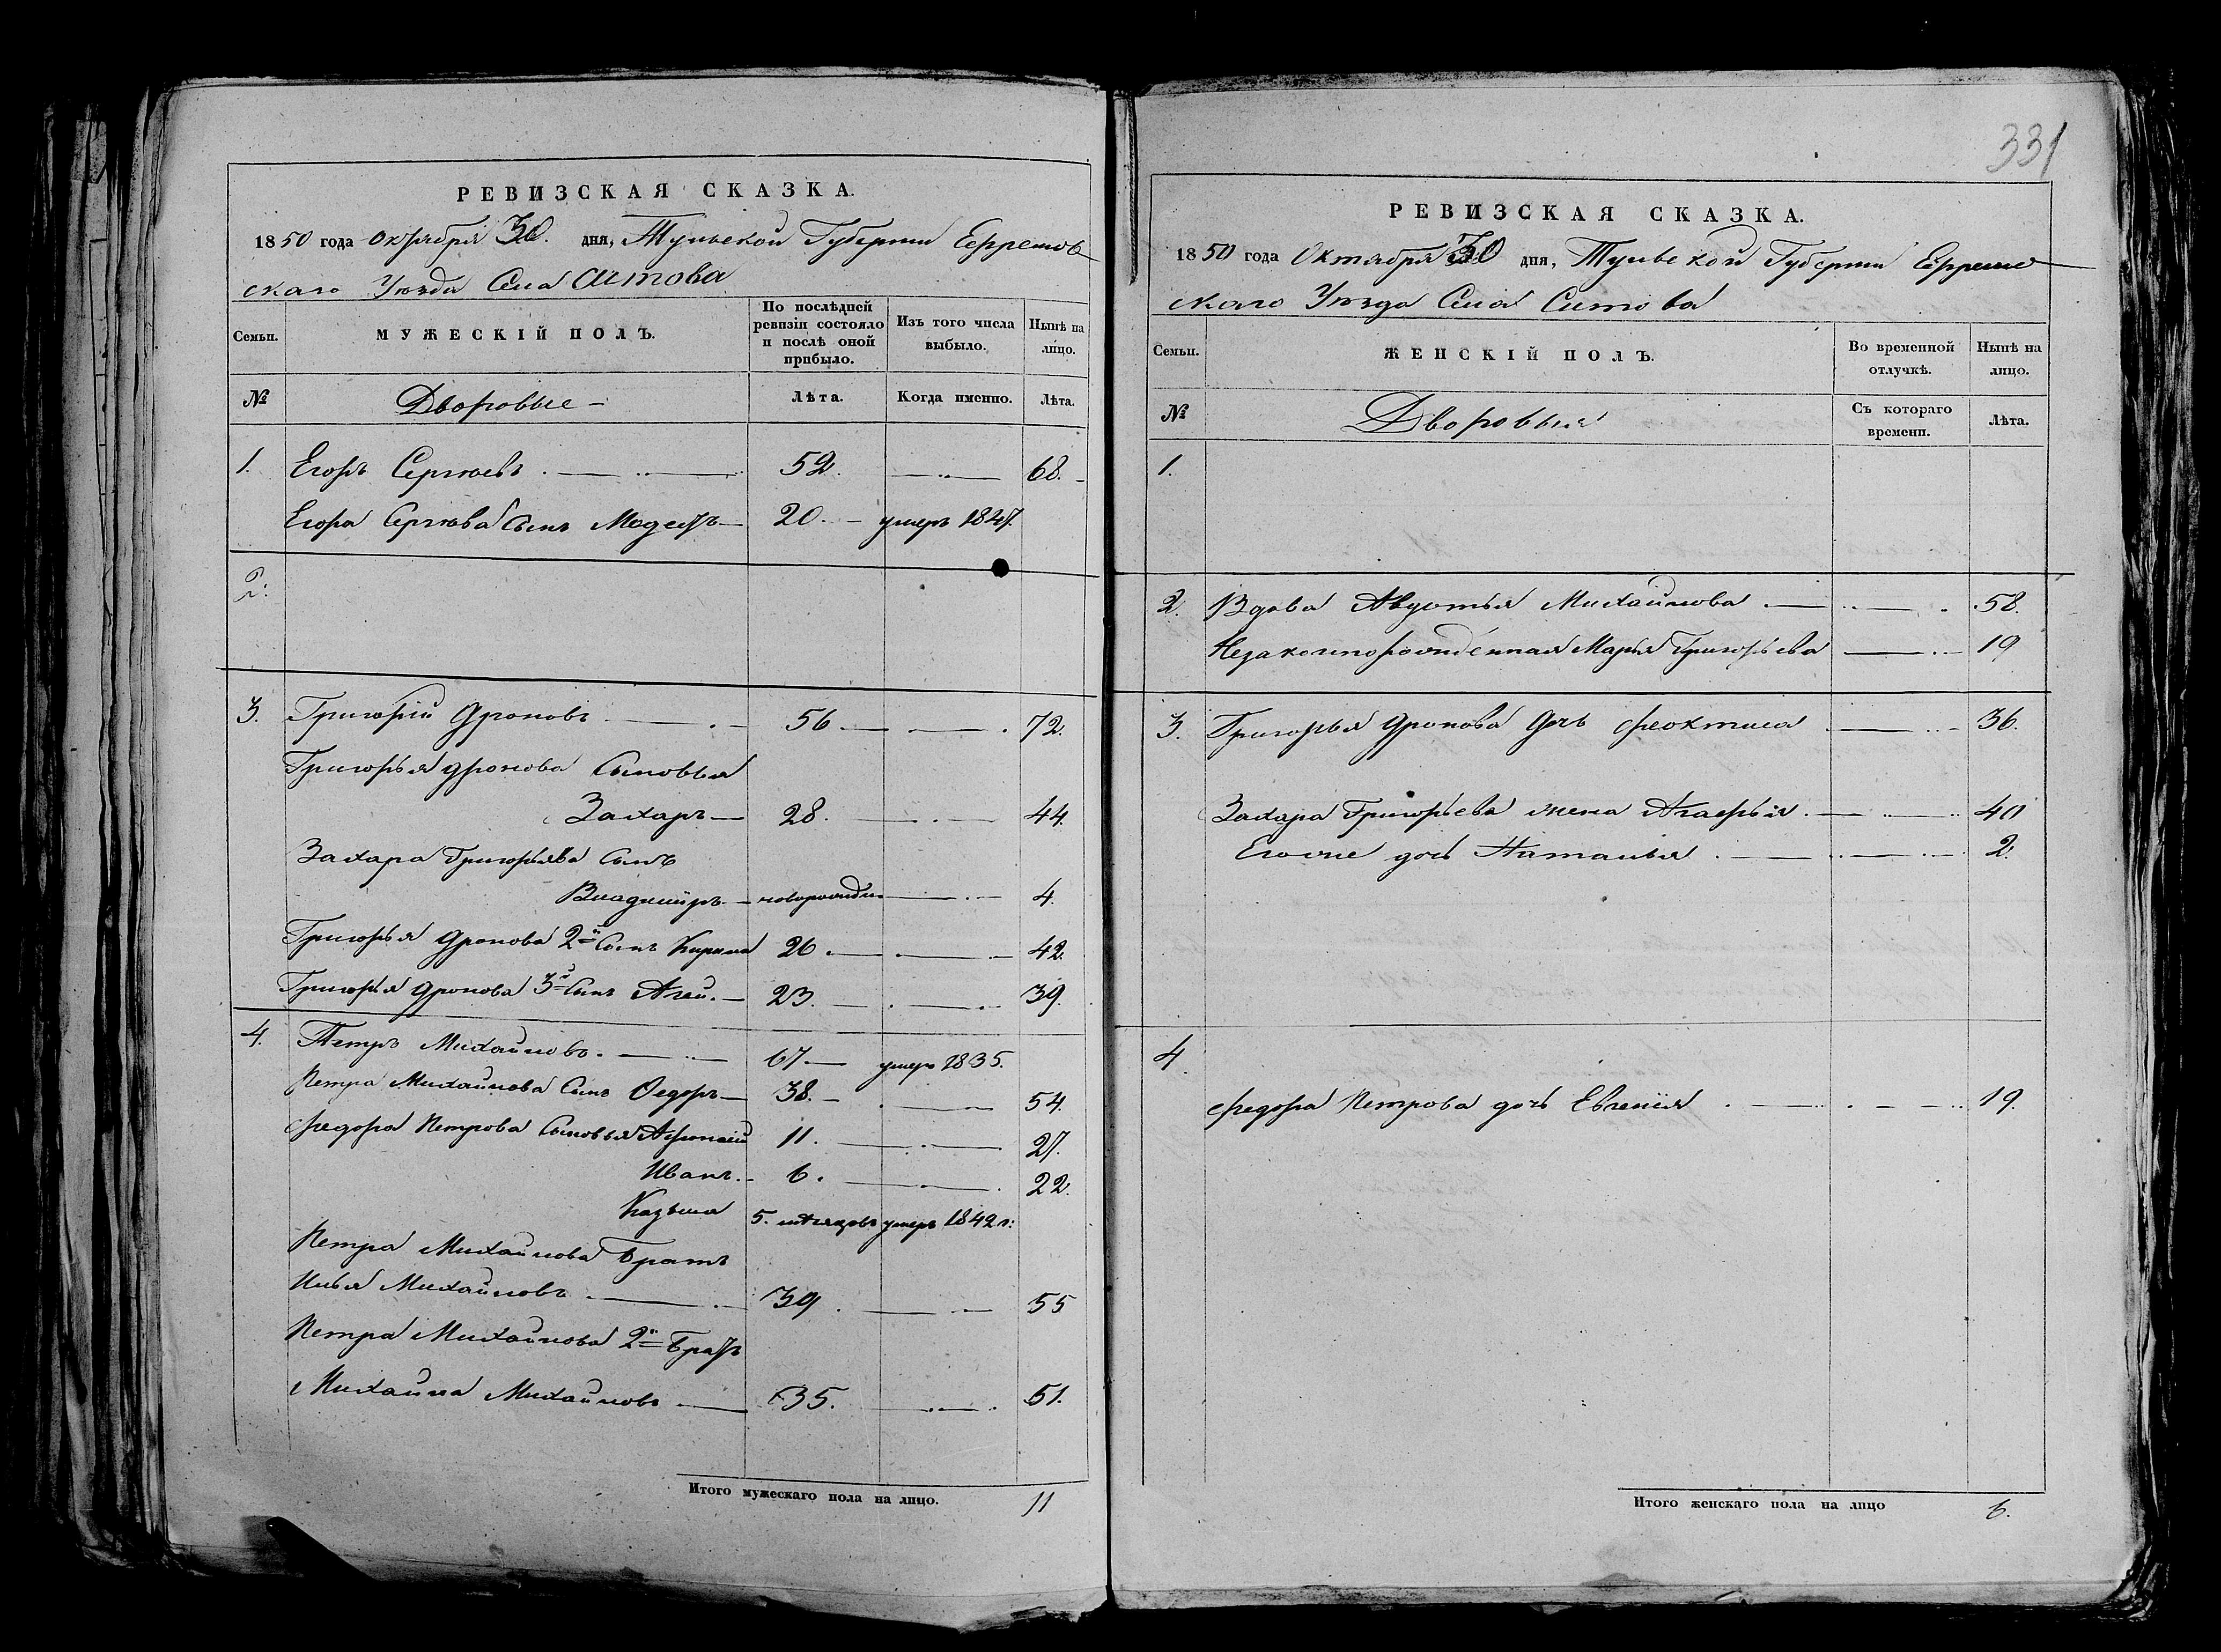 РЕВИЗСКАЯ СКАЗКА.
1850 года Октября 30. дня, Тульской Губернии Ефремов-
скаго Уѣзда Села Ситова
Семьи.
МУЖЕСКІЙ ПОЛЪ.
По послѣдней ревизіи состояло и послѣ оной прибыло.
Изъ того числа выбыло.
Нынѣ на лицо.
№
Дворовые
Лѣта.
Когда именно.
Лѣта.
1. Егоръ Сергѣевъ 52. 68.
Егора Сергѣева Сынъ Модестъ 20. умеръ 1847.
2.
3. Григорій Дроновъ 56 72.
Григорья Дронова Сыновья
Захаръ 28. 44.
Захара Григорьева Сынъ
Владиміръ новорожден 4.
Григорья Дронова 2й Сынъ Кирила 26 42.
Григорья Дронова 3й Сынъ Агей. 23. 39.
4. Петръ Михайловъ. 67 умеръ 1835.
Петра Михайлова Сынъ Ѳедоръ 38. 54.
Федора Петрова Сыновья Афонасій 11. 27.
Иванъ. 6. 22.
Казьма 5. мѣсяцовъ умеръ 1842 г:
Петра Михайлова Братъ
Илья Михайловъ 39. 55
Петра Михайлова 2й Братъ
Михайла Михайловъ 35. 51.
Итого мужескаго пола на лицо. 11
331
РЕВИЗСКАЯ СКАЗКА.
1850 года Октября 30 дня, Тульской Губерніи Ефремо
скаго Уѣзда Села Ситова
Семьи.
ЖЕНСКІЙ ПОЛЪ.
Во временной отлучкѣ.
Нынѣ на лицо.
№
Дворовыя
Съ котораго времени.
Лѣта.
1.
2. Вдова Авдотья Михайлова 58.
Незаконорожденная Марья Григорьева 19
3. Григорья Дронова дочь Феоктиса 36.
Захара Григорьева жена Агафья 40
Егоже дочь Наталья 2.
4.
Федора Петрова дочь Евгенія 19.
Итого женскаго пола на лицо 6.